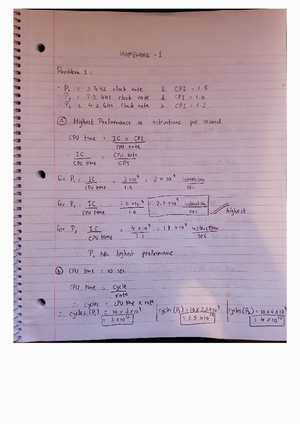 HOMEWORK - 1
Problem 1 :
• P₁ = 3 GHz clock rate & CPI = 1.5
• P₂ = 2.5 GHz clock rate & CPI = 1.0
• P₃ = 4.0 GHz clock rate & CPI = 2.2
ⓐ Highest Performance in instructions per second
CPU time = IC × CPI / CPU rate
∴ IC / CPU time = CPU rate / CPI
for P₁ : IC / CPU time = 3×10⁹ / 1.5 = 2 × 10⁹ instructions / sec
for P₂ IC / CPU time = 2.5×10⁹ / 1.0 = 2.5 × 10⁹ instructions / sec highest
for P₃ IC / CPU time = 4×10⁹ / 2.2 = 1.8 × 10⁹ instructions / sec
∴ P₂ has highest performance
ⓑ CPU time = 10 sec
CPU time = cycles / rate
∴ cycles = CPU time × rate
∴ cycles (P₁) = 10 × 3×10⁹ = 3 × 10¹⁰
cycles (P₂) = 10 × 2.5×10⁹ = 2.5 × 10¹⁰
cycles (P₃) = 10 × 4×10⁹ = 4 × 10¹⁰